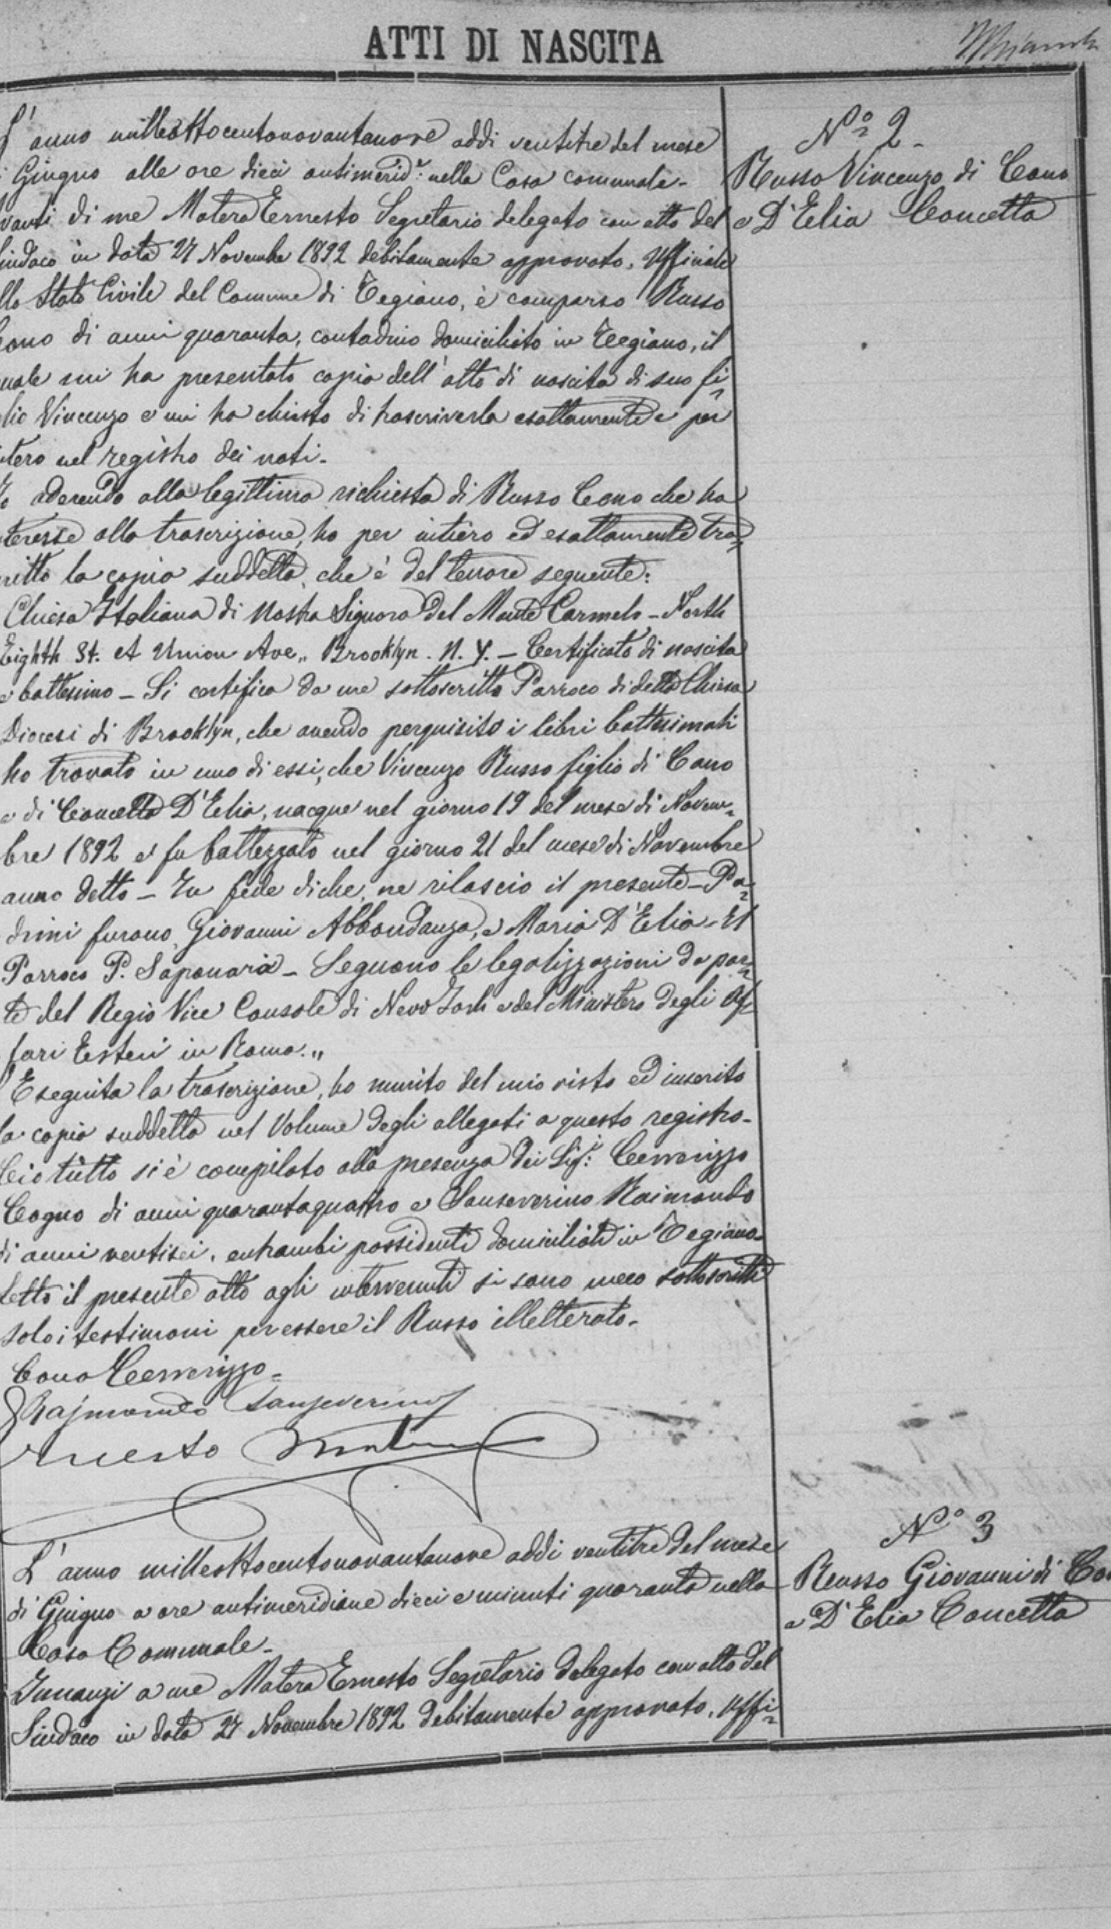 ATTI DI NASCITA
N.º 2
Russo Vincenzo di Cono
e D'Elia Concetta
L'anno millottocentonovantanove addì ventitre del mese
Giugno alle ore dieci antimerid.e nella Casa comunale.
vanti di me Matera Ernesto Segretario delegato con atto del
Sindaco in data 27 Novembre 1892 debitamente approvato, Uffiziale
llo Stato Civile del Comune di Teggiano, è comparso Russo
Cono di anni quaranta, contadino domiciliato in Teggiano, il
quale mi ha presentato copia dell'atto di nascita di suo fi=
glio Vincenzo e mi ha chiesto di trascriverla esattamente e per
intero nel registro dei nati.
Io aderendo alla legittima richiesta di Russo Cono che ha
teresse alla trascrizione, ho per intiero ed esattamente tra=
scritto la copia suddetta, che è del tenore seguente:
Chiesa Italiana di Nostra Signora del Monte Carmelo - North
Eighth St. et Union Ave,, Brooklyn. N. Y. - Certificato di nascita
e battesimo - Si certifica da me sottoscritto Parroco di detta Chiesa
Diocesi di Brooklyn, che avendo perquisito i libri battesimali
ho trovato in uno di essi, che Vincenzo Russo figlio di Cono
e di Concetta D'Elia, nacque nel giorno 19 del mese di Novem=
bre 1892 e fu battezzato nel giorno 21 del mese di Novembre
anno detto - In fede di che, ne rilascio il presente - Pa=
drini furono Giovanni Abbondanza, e Maria D'Elia - Il
Parroco P. Saponara - Seguono le legalizzazioni da par=
te del Regio Vice Console di New York e del Ministero degli Af=
fari Esteri in Roma.,,
Eseguita la trascrizione, ho munito del mio visto ed inserito
la copia suddetta nel Volume degli allegati a questo registro.
Ciò tutto si è compilato alla presenza dei Sig.i: Cerverizzo
Cogno di anni quarantaquattro e Sanseverino Raimondo
di anni ventisei, entrambi possidenti domiciliati in Teggiano.
Letto il presente atto agli intervenuti si sono meco sottoscritti
solo i testimoni per essere il Russo illetterato.
Cono Cerverizzo.
Rajmondo Sanseverino
Ernesto Matera
N.º 3
Russo Giovanni di Co
e D'Elia Concetta
L'anno millottocentonovantanove addì ventitre del mese
di Giugno a ore antimeridiane dieci e minuti quaranta nella
Casa Comunale.
Innanzi a me Matera Ernesto Segretario delegato con atto del
Sindaco in data 27 Novembre 1892 debitamente approvato, Uffi=